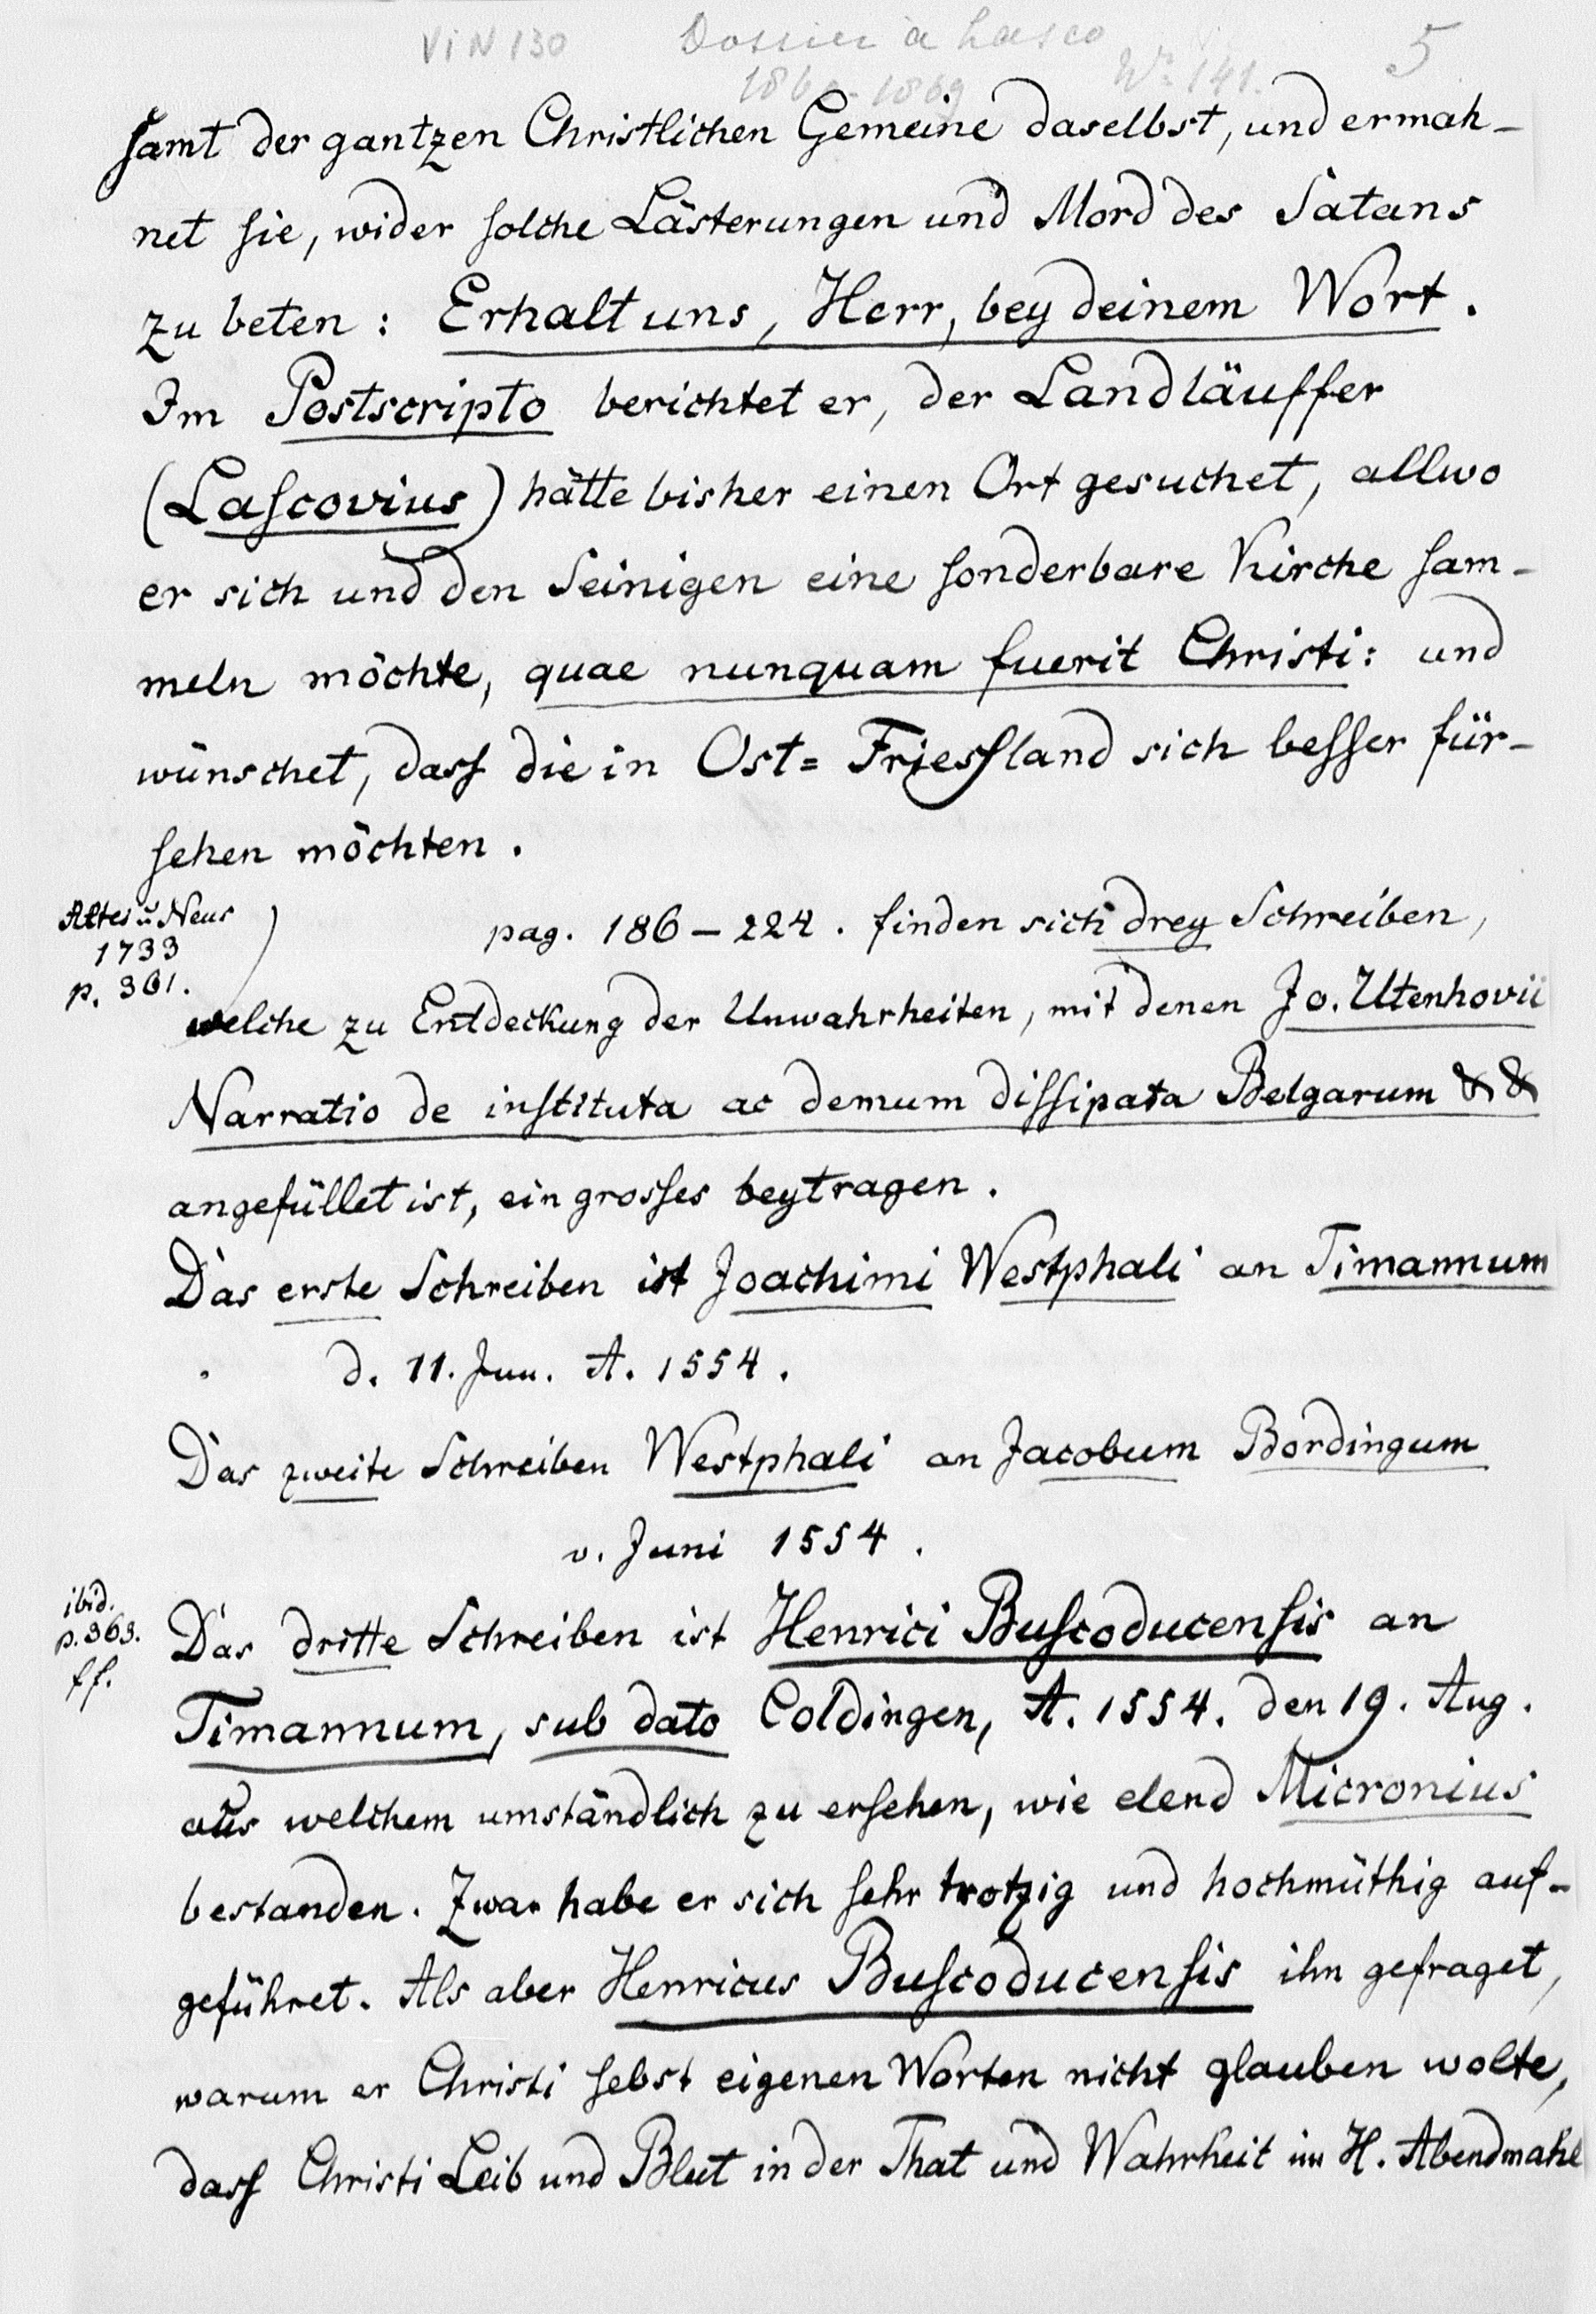 ViN 130 Dossier a Lasco 5
1860-1869 No 141.
samt der gantzen Christlichen Gemeine daselbst, und ermah-
net sie, wider solche Lästerungen und Mord des Satans
zu beten: Erhalt uns, Herr, bey deinem Wort.
Im Postscripto berichtet er, der Landläuffer
(Lascovius) hätte bisher einen Ort gesuchet, allwo
er sich und den Seinigen eine sonderbare Kirche sam-
meln möchte, quae nunquam fuerit Christi: und
wünschet, dass die in Ost= Friessland sich besser für-
sehen möchten.
Altes u. Neus
1733
p. 361.
pag. 186 – 224. finden sich drey Schreiben,
welche zu Entdeckung der Unwahrheiten, mit denen Jo. Utenhovii
Narratio de instituta ac demum dissipata Belgarum & &
angefüllet ist, ein grosses beytragen.
Das erste Schreiben ist Joachimi Westphali an Timannum
d. 11. Jun. A. 1554.
Das zweite Schreiben Westphali an Jacobum Bordingum
v. Juni 1554.
ibid.
p. 363.
ff.
Das dritte Schreiben ist Henrici Buscoducensis an
Timannum, sub dato Coldingen, A. 1554. den 19. Aug.
aus welchem umständlich zu ersehen, wie elend Micronius
bestanden. Zwar habe er sich sehr trotzig und hochmüthig auf-
geführet. Als aber Henricus Buscoducensis ihn gefraget,
warum er Christi sebst eigenen Worten nicht glauben wolte,
dass Christi Leib und Blut in der That und Wahrheit im H. Abendmahl